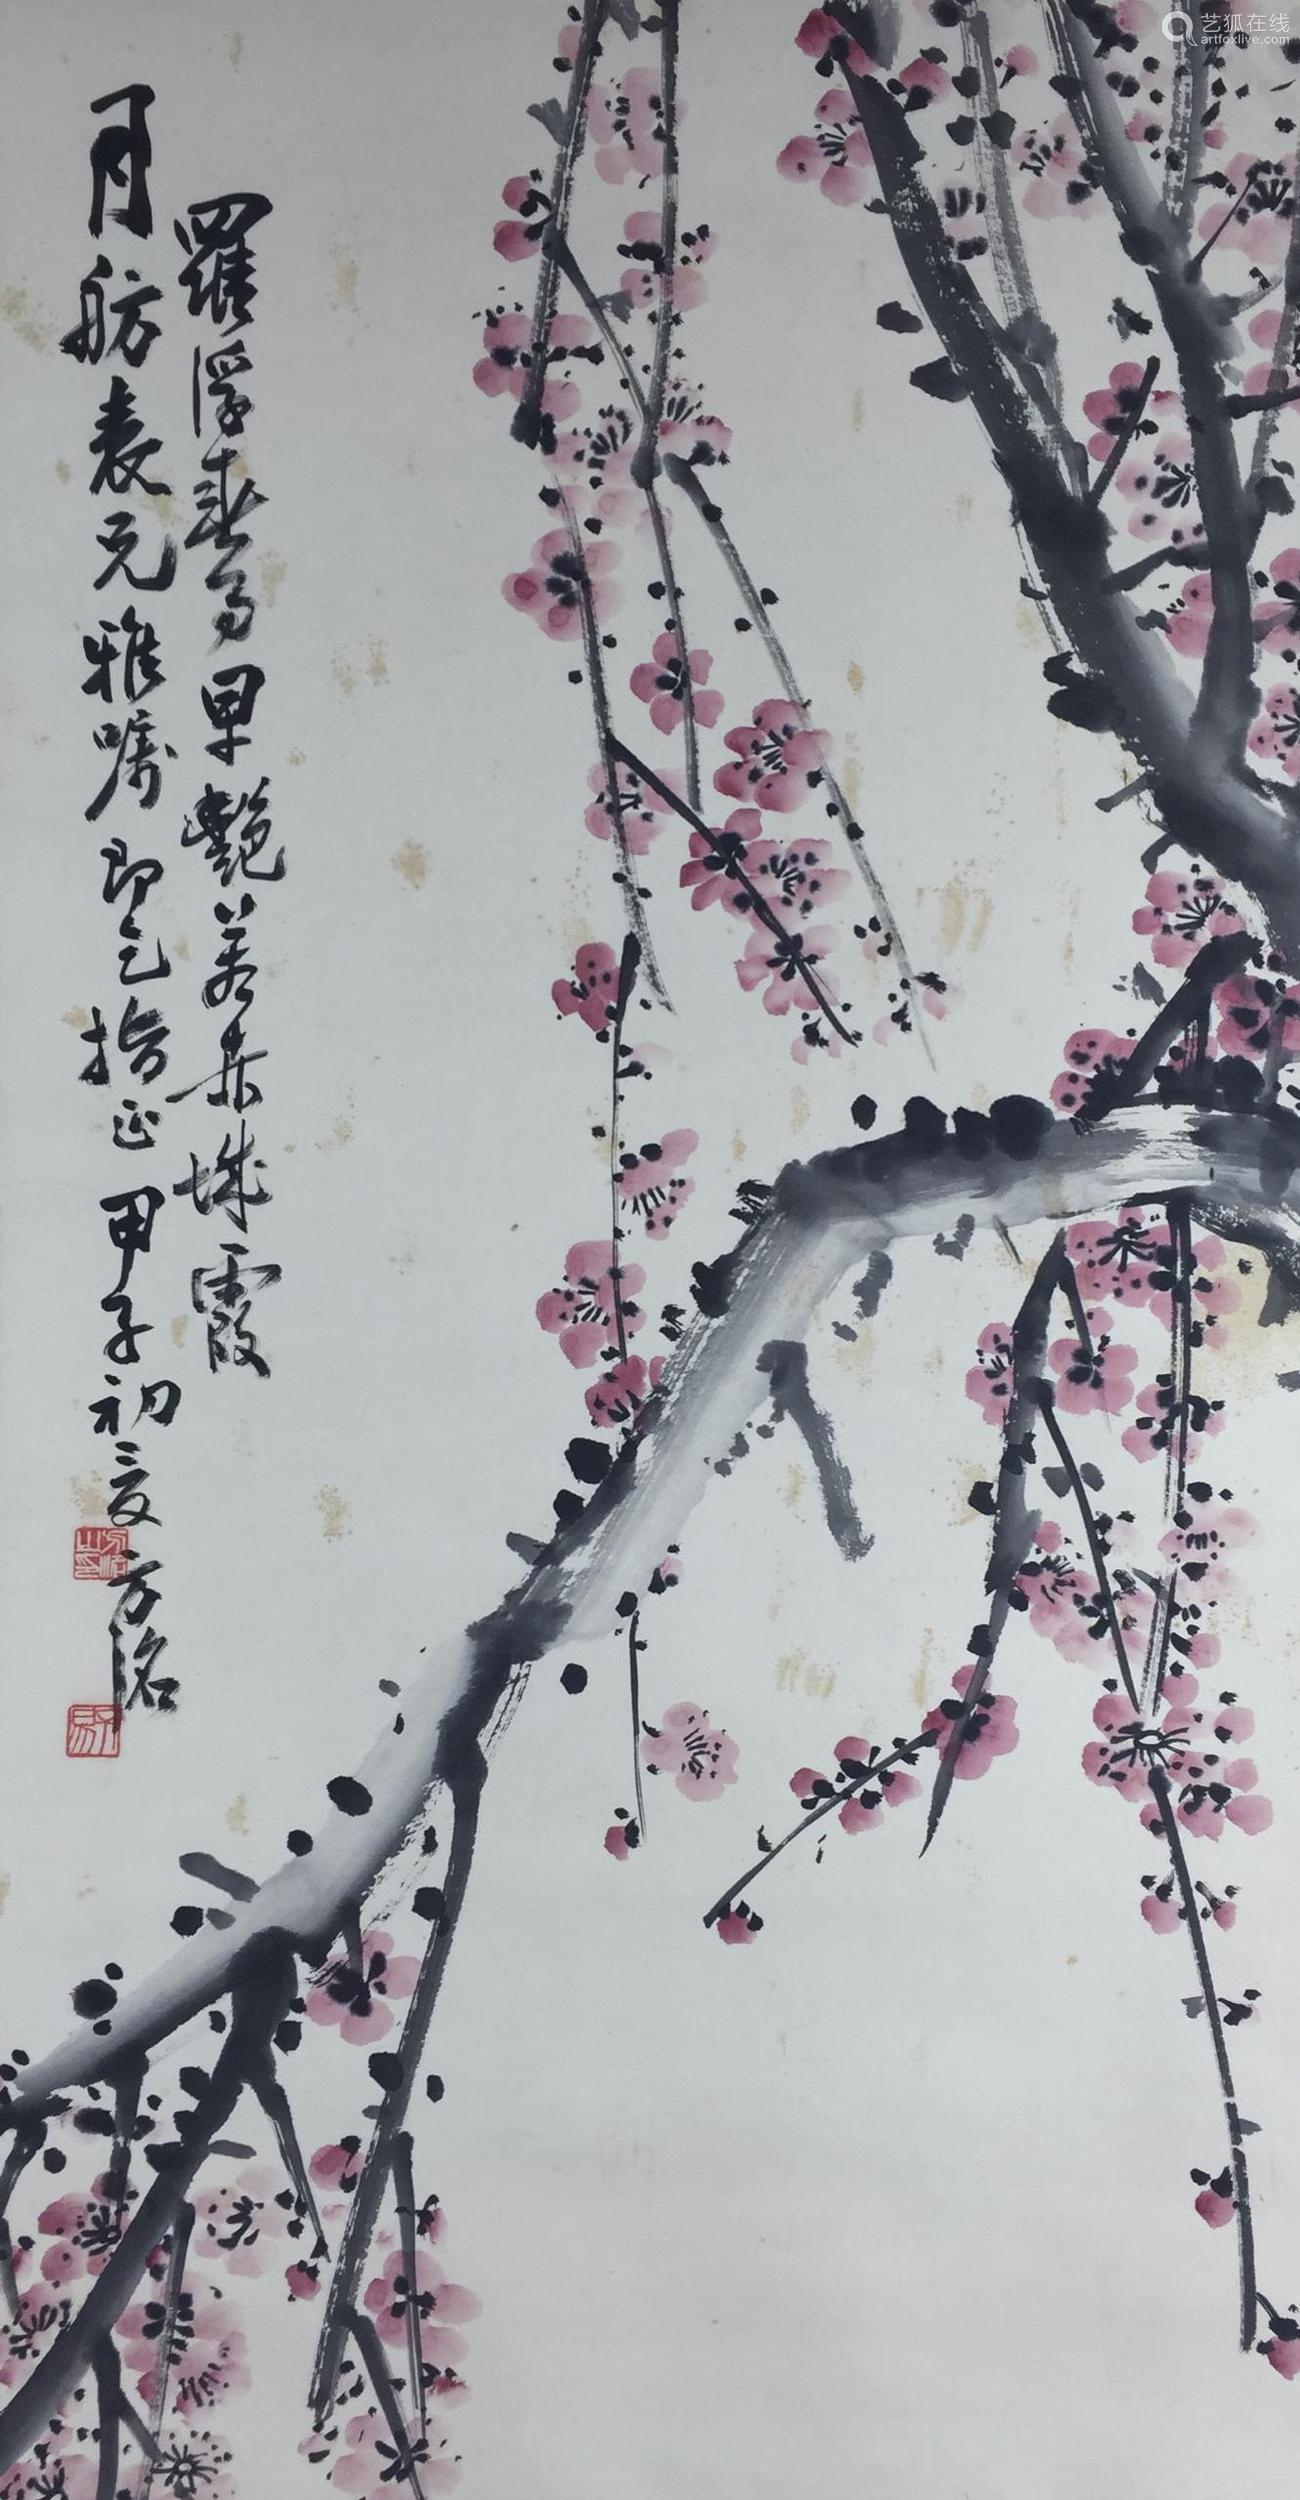 羅浮春高早艷若赤城霞
月舫表兄雅嘱即乞指正甲子初夏方洺
艺狐在线
artfoxlive.com